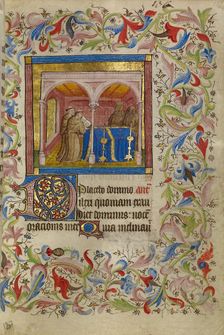 Placebo domino. ant
ilexi quoniam exau
diet dominus: vocē
orationis mee Quia inclinavit